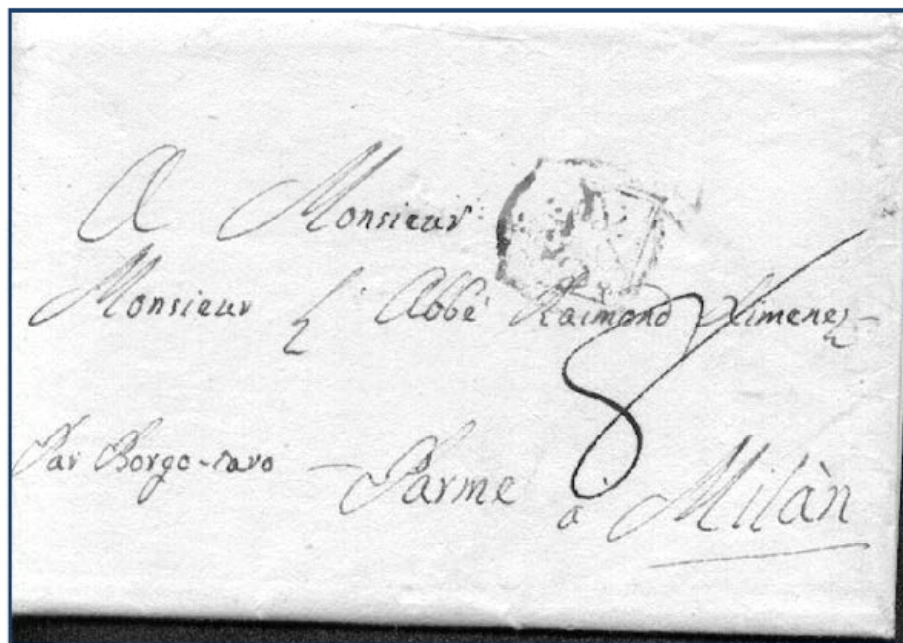 A Monsieur
Monsieur L'Abbé Raimond Ximenez
Par Borgo-taro — Parme à Milàn
8